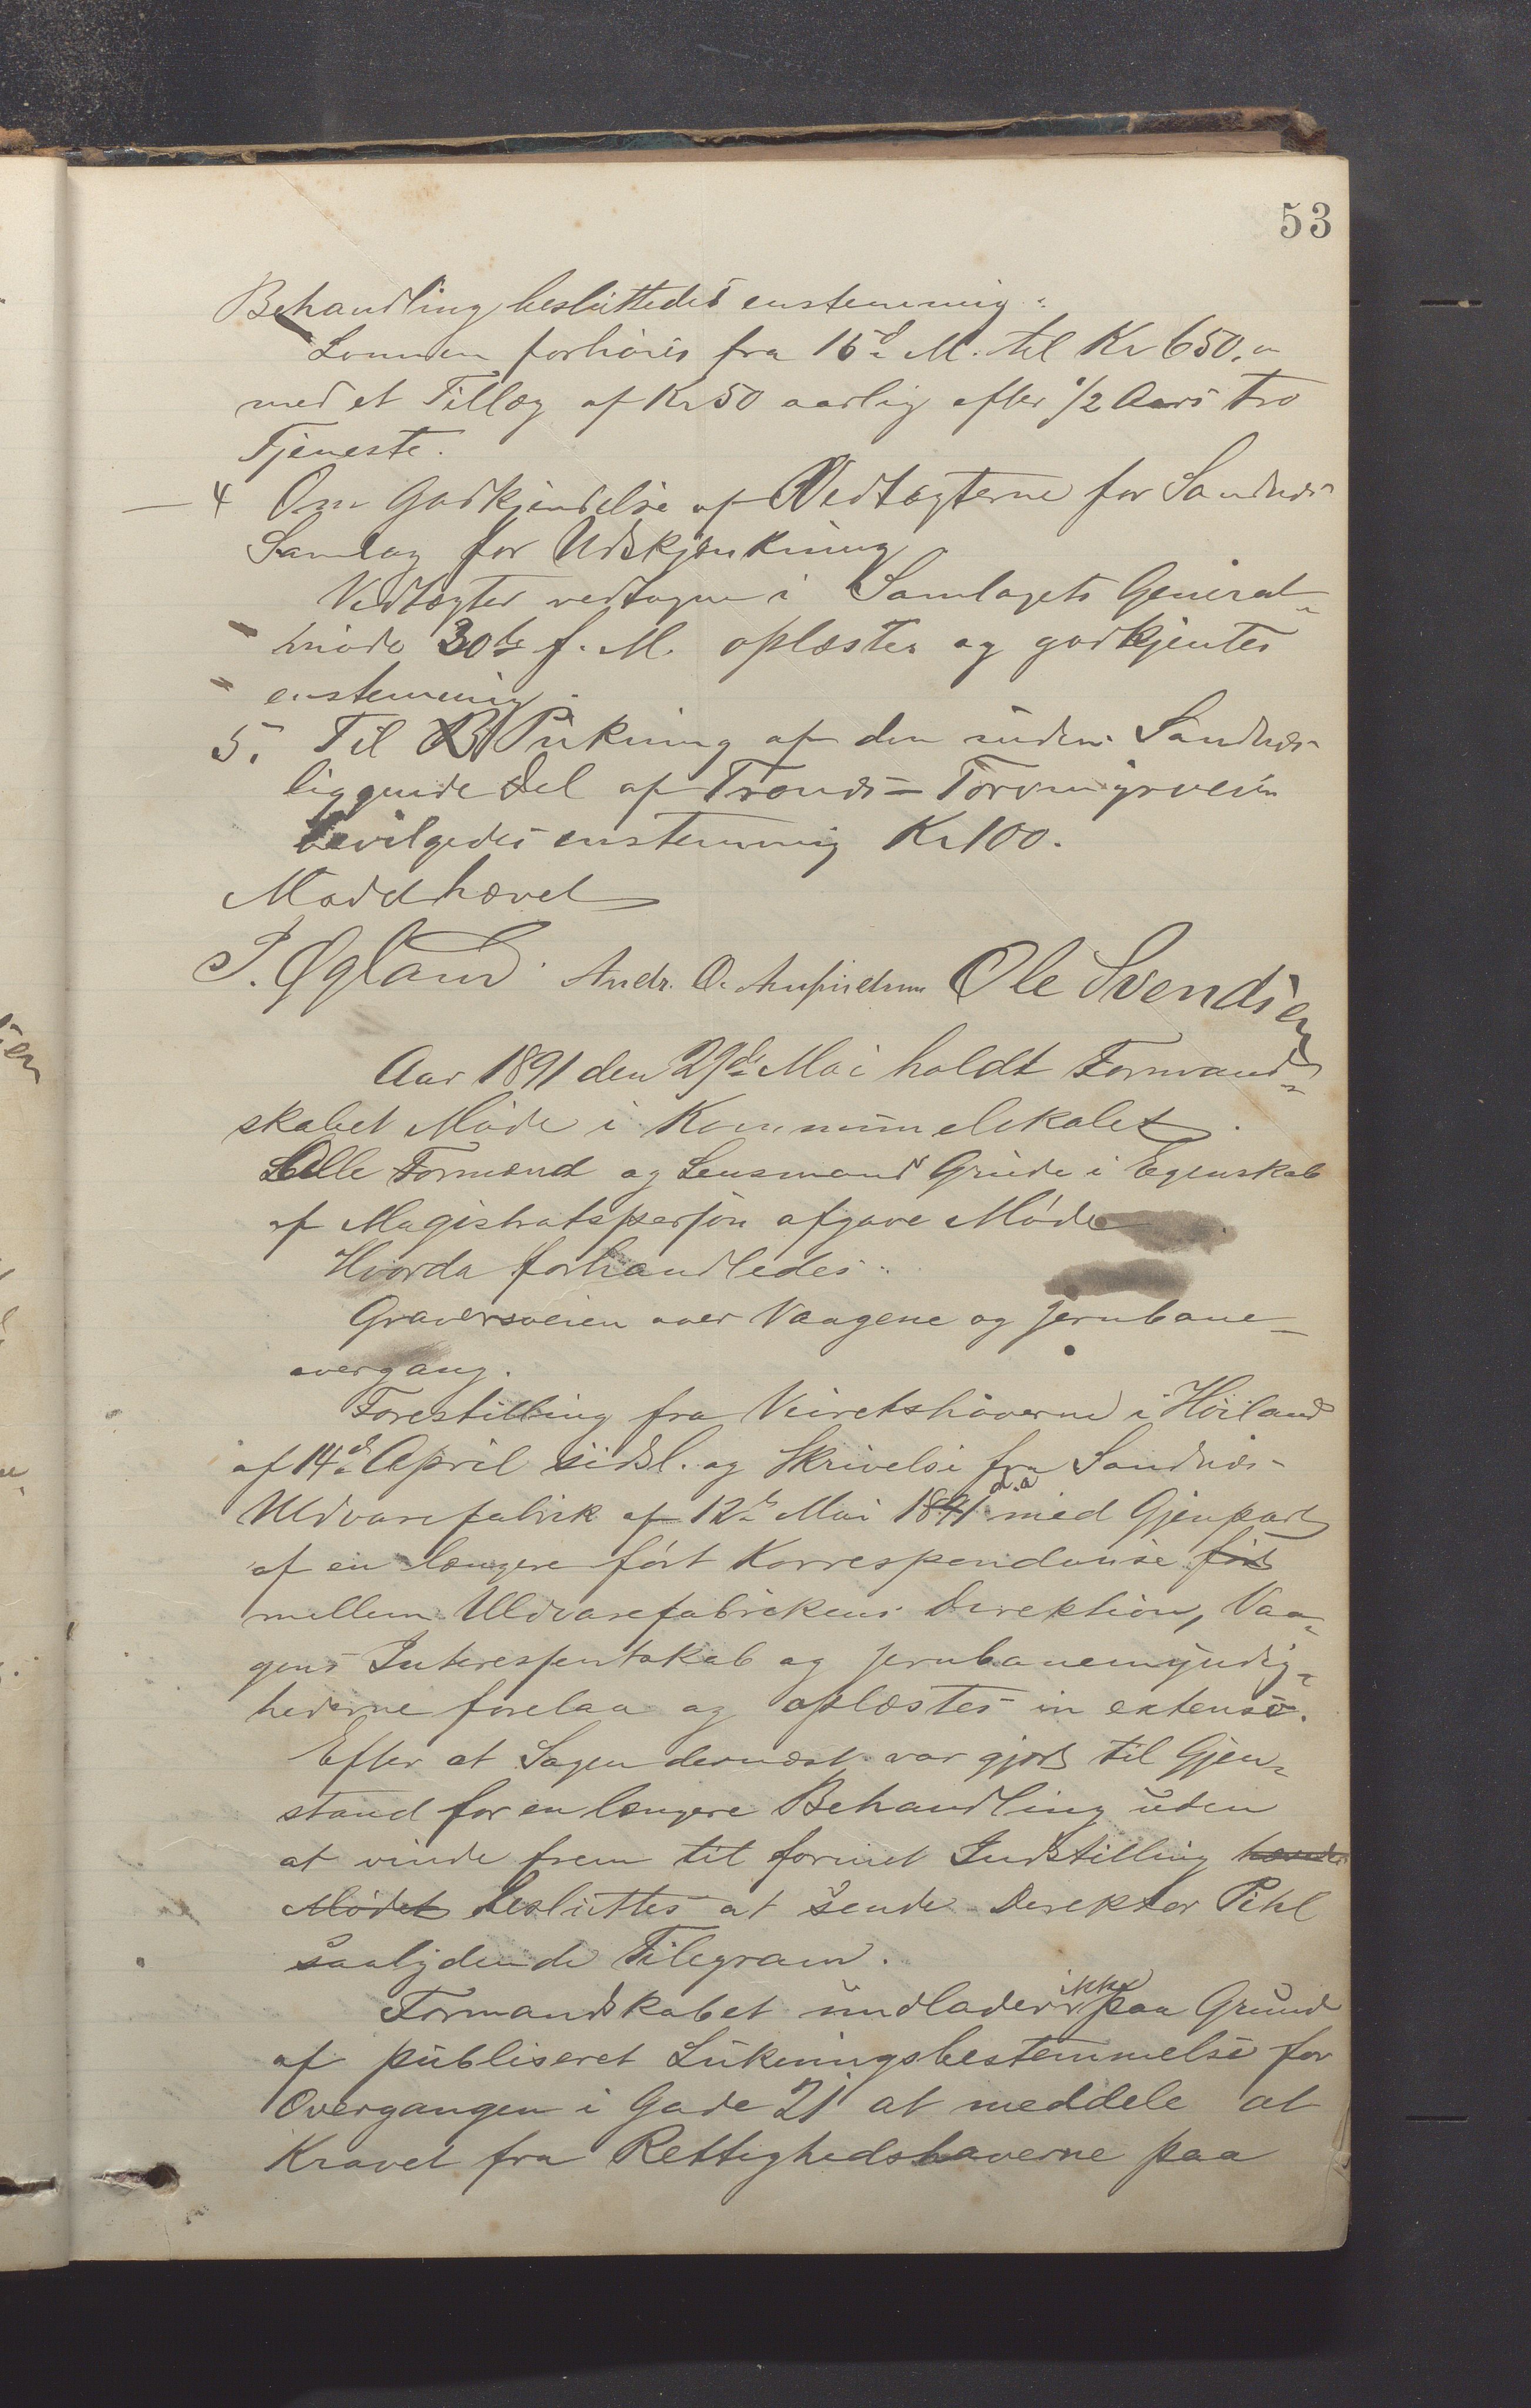 53
Behandling besluttedes enstemmig:
Lønnen forhøies fra 15d M. til Kr 650,
med et Tillæg af Kr 50 aarlig efter 1/2 Aars tro
Tjeneste.
4 Om Godkjendelse af Vedtægterne for Sandnæs
Samlag for Udskjænkning
Vedtægter vedtagne i Samlagets General-
møde 30te f. M. oplæstes og godkjentes
enstemmig.
5. Til Pukning af den inden Sandnæs
liggende Del af Tronds-Torvmyrveien
bevilgedes enstemmig Kr 100.
Mødet hævet
S. Øgland Andr. O. Ole Svendsen
Aar 1891 den 29de Mai holdt Formand-
skabet Møde i Kommunelokalet.
Alle Formænd og Lensmand Grude i Egenskab
af Magistratsperson afgave Møde
Hvorda forhandledes:
Graversveien over Vaagene og Jernbane-
overgang.
Forestilling fra Veiretshaverne i Høiland
af 14de April sidstl. og Skrivelse fra Sandnæs
Uldvarefabrik af 12te Mai 1891 d.a med Gjenpart
af en længere ført Korrespondanse ført
mellem Uldvarefabrikens Direktion, Vaa-
gens Interessentskab og Jernbanemyndig-
hederne forelaa og oplæstes in extenso.
Efter at Sagen dernæst var gjort til Gjen-
stand for en længere Behandling uden
at vinde frem til formel Indstilling hævedes
Mødet besluttes at sende Direktør Pihl
saalydende Telegram.
Formandskabet undlader ikke paa Grund
af publiseret Lukningsbestemmelse for
Overgangen i Gade 21 at meddele at
Kravet fra Rettighedshaverne paa